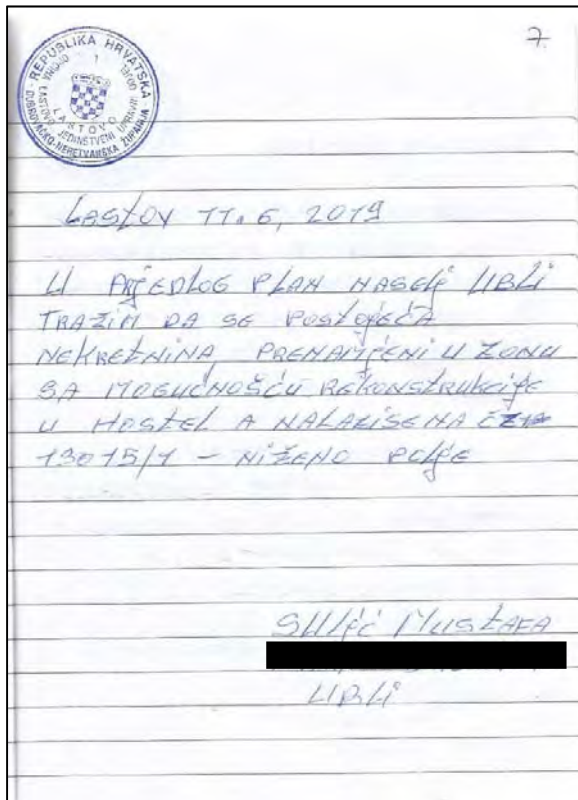 7.
REPUBLIKA HRVATSKA
DUBROVAČKO-NERETVANSKA ŽUPANIJA
LASTOVO
JEDINSTVENI UPRAVNI
Lastov 11.6, 2019
U PRJEDLOG PLAN NASELJ UBLI
TRAŽIM DA SE POSTOJEĆA
NEKRETNINA, PRENAMJENI U ZONU
SA MOGUĆNOŠĆU REKONSTRUKCIJE
U HOSTEL A NALAZISE NA
13075/1 - NIŽENO POLJE
MUSTAFA
UBLI